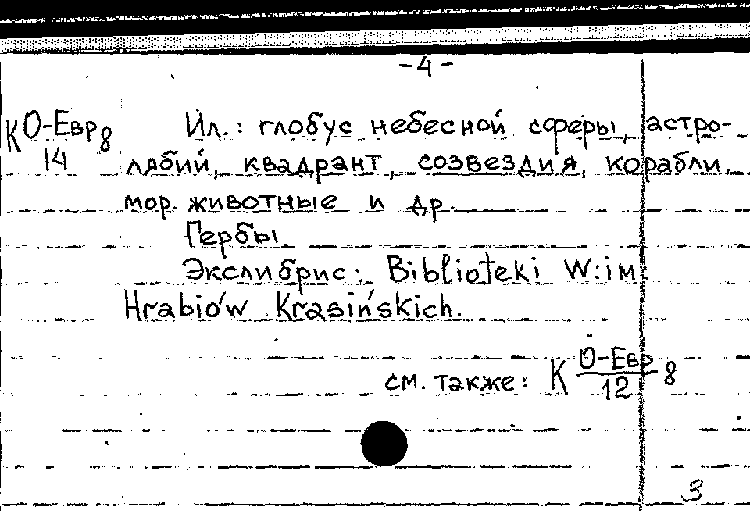 -4-
К О-Евр 8 Ил.: глобус небесной сферы, астро-
14 лябий, квадрант, созвездия, корабли,
мор. животные и др.
Гербы
Экслибрис: Biblioteki W:iM:
Hrabiów Krasińskich.
см. также: К О-Евр 8
12
3